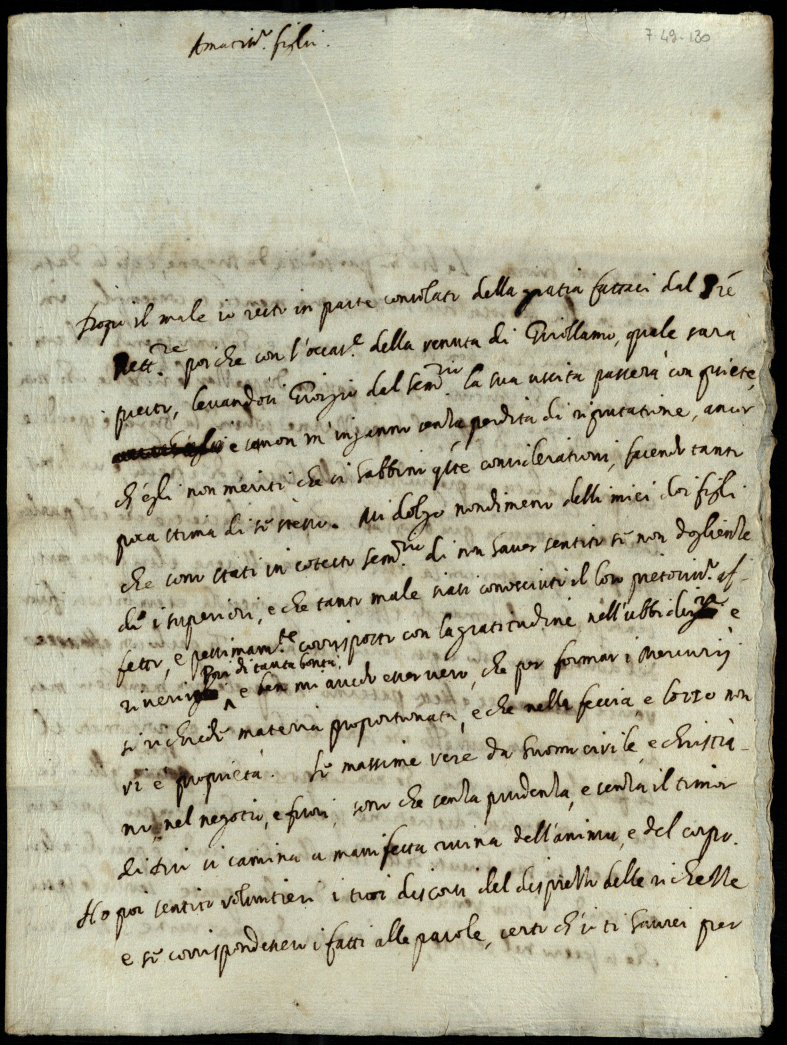 Amatis.mi figli.
7-49-130
Dopo il male io resto in parte consolato della gratia fattaci dal Pre
Rett.re poiche con l'occas.e della venuta di Girollamo, quale sara
presto, levandosi Giorgio dal sem.rio la sua uscita passerà con quiete,
e se non m'inganno senza perdita di riputatione, ancor
ch'egli non meriti che si habbino q.ste considerationi, facendo tanto
poca stima di se stesso. Mi dolgo nondimeno delli miei doi figli
che sono stati in cotesto sem.rio di non haver sentito se non doglienze
de i superiori, e che tanto male siasi conosciuto il loro pietosis.mo af-
fetto, e pessimam.te corrisposto con la gratitudine, nell'ubbidirza e
riverir di tanta bontà, e ben mi avedo esser vero, che per formar i Mercurij
si richiede materia proportionata, e che nella feccia, e lotto non
vi è proprietà. Le massime vere da huomo civile, e christia-
no, nel negotio, e fuori, sono che senza prudenza, e senza il timor
di Dio si camina a manifesta ruina dell'animo, e del corpo.
Ho poi sentito volontieri i tuoi discorsi del disprezzo delle richezze
e se corrispondessero i fatti alle parole, certo ch'io ti haurei per